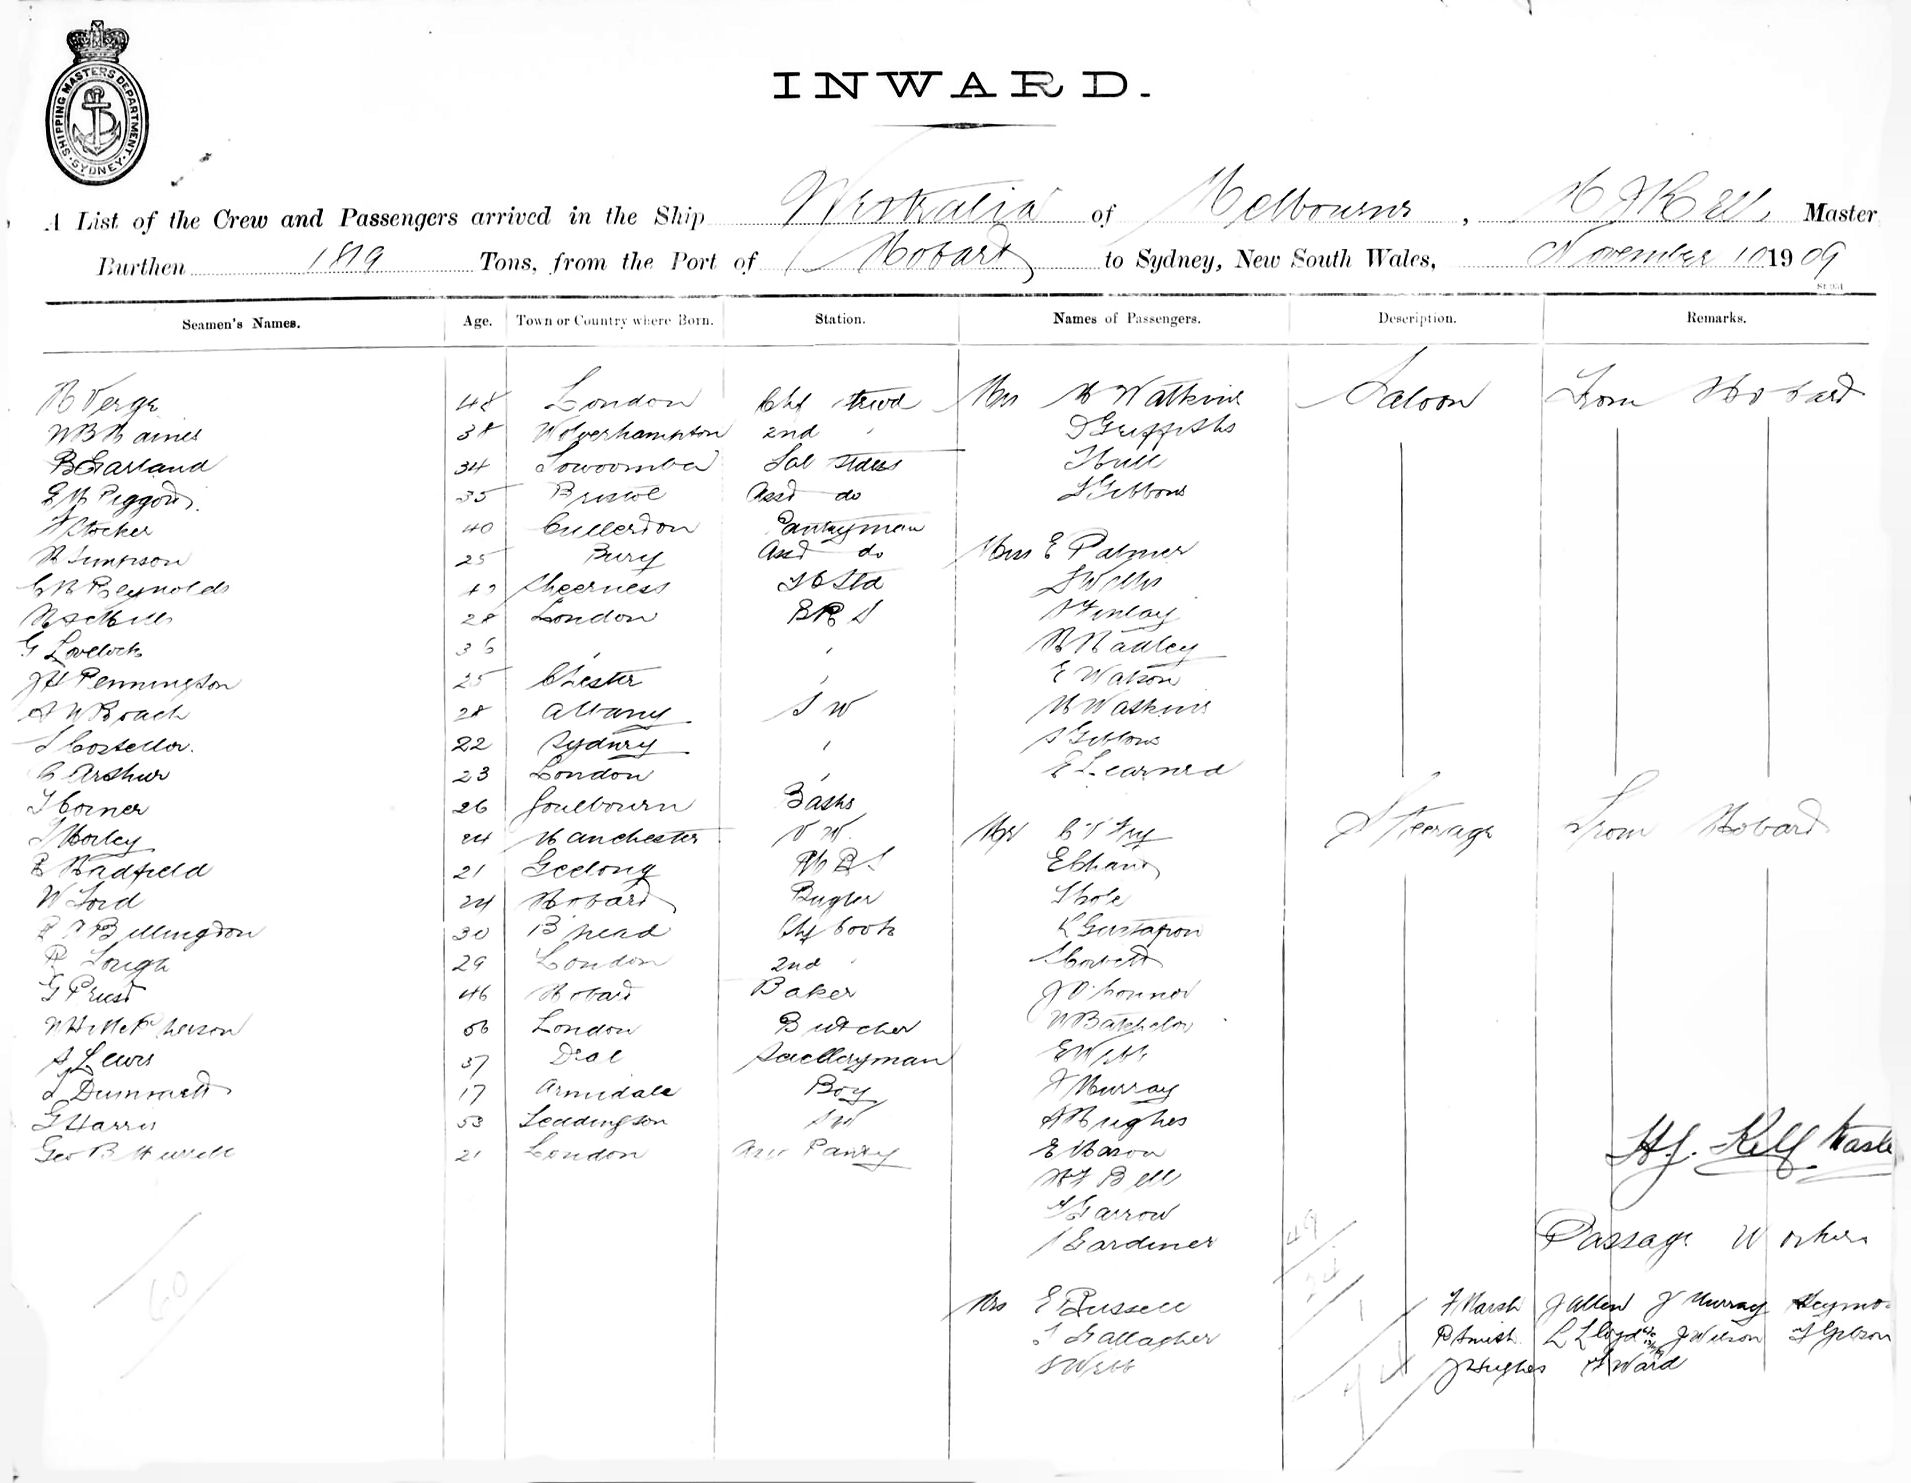 SHIPPING MASTERS DEPARTMENT · SYDNEY ·
INWARD.
A List of the Crew and Passengers arrived in the Ship Westralia of Melbourne, H J Kell, Master
Burthen 1819 Tons, from the Port of Hobart to Sydney, New South Wales, November 10 1909
Seamen's Names. Age. Town or Country where Born. Station. Names of Passengers. Description. Remarks.
H Verge 48 London Chf Stewd Mrs M Watkins Saloon From Hobart
W B Haines 38 Wolverhampton 2nd " D Griffiths
B Garland 34 Toowoomba Sal Stdess T Bull
E M Piggott 35 Bristol Asst do S Gibbons
F Stocker 40 Cullerdon Pantryman
H Simpson 25 Bury Asst do Miss E Palmer
C H Reynolds Sheerness Std S Wells
28 London B R S S Finlay
G Lovelock 36 " " H Hadley
J H Pennington 25 Chester " E Watson
A W Roach 28 Albany S W M Watkins
S Costello. 22 Sydney " S Gibbons
C Arthur 23 London " E Learned
T Corner 26 Goulbourn Baths
T Horley 24 Manchester V W. Mr C T Fry Steerage From Hobart
E Hadfield 21 Geelong M R S E Chand
W Ford 24 Hobart Bugler T Cole
E A Billingdon 30 B'head Chf Cook L Gustafson
R Lough 29 London 2nd " S Corbett
G Priest 46 Hobart Baker J O'Connor
W H McPherson 56 London Butcher W Batchelor
S Lewis 37 Deal Sculleryman E Webb
L Dummett 17 Armidale Boy J Murray
G Harris 53 Teddington S W A Hughes
Geo B Hurrell 21 London Ass Pantry E Mason
H J. Kell Master
H F Bell
T Garrow
Passage Workers
S Gardiner
49
24
Mrs E Russell F Marsh J Allen J Murray Seymo
S Gallagher P Smith L Lloyd J Wilson T Gibson
S Webb J Hughes F Ward
60
74